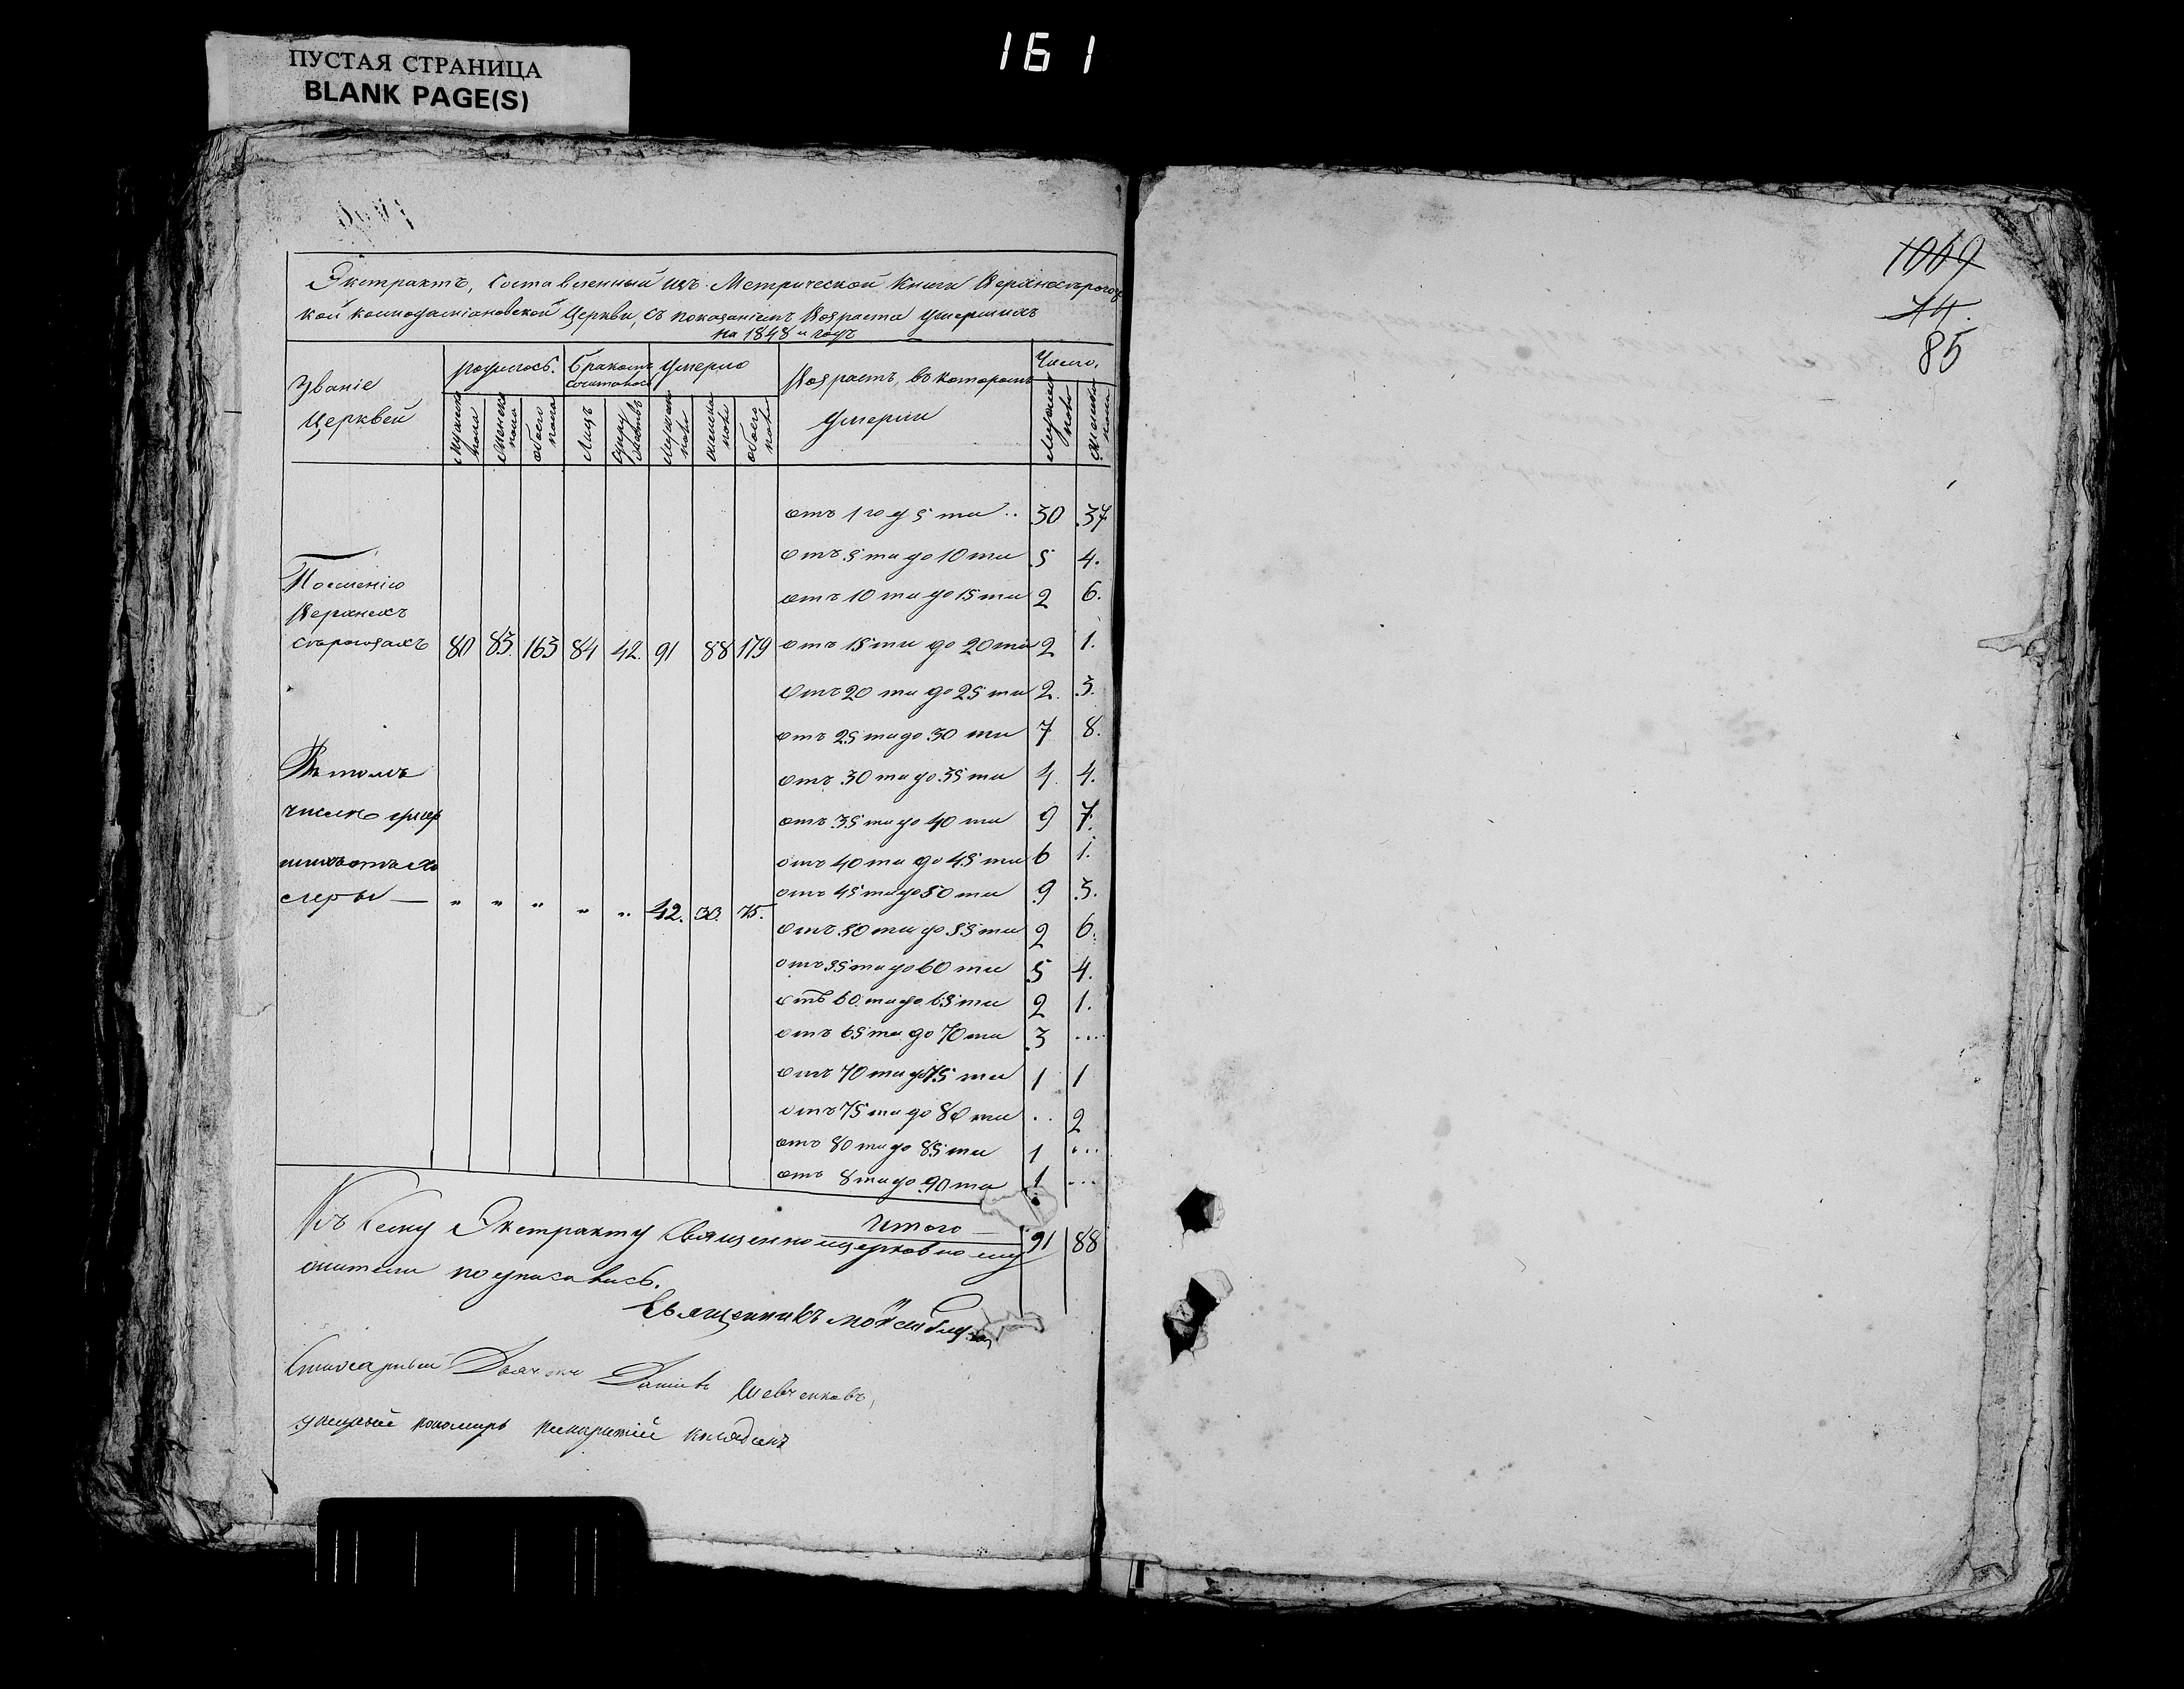 161
ПУСТАЯ СТРАНИЦА
BLANK PAGE(S)
Экстрактъ, Составленный изъ Метрической Книги Верхнесѣрогоз
кой космодаміановской Церкви, съ показаніемъ Возраста умершихъ
на 1848 й годъ
Званіе Церквей
родилось.
Бракомъ сочиталось
Умерло
Возрастъ, въ которомъ Умерли
Число.
Мужска пола
Женска пола
обоего пола
Лицъ
Супружествъ
Мужска пола
женска пола
обоего пола
Мужска пола
Женска пола
отъ 1 го д 5 ти .. 30 37
отъ 5 ти до 10 ти 5 4.
отъ 10 ти до 15 ти 2 6.
Поселенію
Верхнихъ
сѣрогозахъ 80 83. 163 84 42. 91 88 179
отъ 15 ти до 20 ти 2 1.
отъ 20 ти до 25 ти 2. 3.
отъ 25 ти до 30 ти 7 8.
Въ томъ
числѣ умер
шихъ отъ хо
леры — „ „ „ „ „ 42. 33. 75.
отъ 30 ти до 35 ти 4 4.
отъ 35 ти до 40 ти 9 7.
отъ 40 ти до 45 ти 6 1.
отъ 45 ти до 50 ти 9 3.
отъ 50 ти до 55 ти 2 6.
отъ 55 ти до 60 ти 5 4.
отъ 60 ти до 65 ти 2 1.
отъ 65 ти до 70 ти 3 ...
отъ 70 ти до 75 ти 1 1
отъ 75 ти до 80 ти .. 2
отъ 80 ти до 85 ти 1 ...
отъ 8 ти до 90 ти 1 ...
Итого — 91 88
Къ Сему Экстракту Священноцерковнослу
жители подписались.
Священникъ Моисей
Дьячокъ Шевченковъ,
пономарь
1069
44.
85